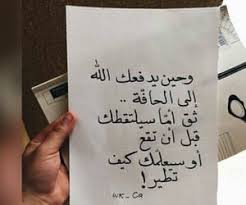 وحين يدفعك الله
إلى الحافة ..
ثق امّا سيلتقطك
قبل أن تقع
أو سيعلمك كيف
تطير!